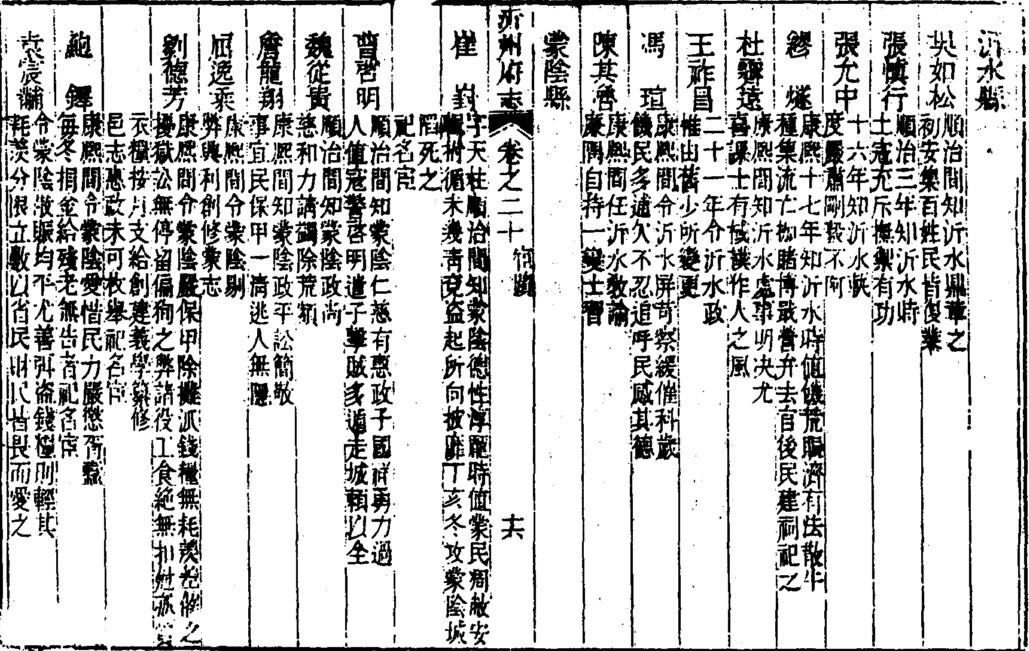 沂水縣
吳如松 順治間知沂水鼎革之
初安樂百姓民皆復業
張慎行 順治三年知沂水時
土寇充斥撫禦有功
張允中 十六年知沂水
度嚴肅剛毅不阿
繆燧 康熙十七年知沂水時值饑荒賑濟有法散牛
種集流亡
賭博
營弁去官後民建祠祀之
杜齊遠 康熙間知沂水處事明决尤
喜課士有棫樸作人之風
王祚昌 二十一年令沂水政
惟由舊少所變更
馮瑄 康熙間令沂水屏苛察緩催科歲
饑民多逋欠不忍追呼民感其德
陳其 康熙間任沂水教諭
廉隅自持一變士習
蒙陰縣
沂州府志 卷之二十 宦蹟 十六
崔對 字天柱順治間知蒙陰德性淳龎時值蒙民凋敝安
輯拊循未幾青兗盗起所向披靡丁亥冬攻蒙陰城
陷死之
祀名宦
曹啓明 順治間知蒙陰仁慈有惠政子國祥勇力過
人值寇警啓明遣子擊賊多遁走城賴以全
魏從貴 順治間知蒙陰政尚
慈和力請蠲除荒額
詹龍翔 康熙間知蒙陰政平訟簡敬
事宜民保甲一清逃人無隱
屈逸乘 康熙間令蒙陰剔
弊興利創修蒙志
劉德芳 康熙間令蒙陰嚴保甲除攤派錢糧無耗羨差徭之
擾獄訟無停留偏徇之弊諸役工食絕無扣尅
衣糧按月支給創建義學纂修
邑志惠政未可枚舉祀名宦
鮑鐸 康熙間令蒙陰愛惜民力嚴懲衙蠹
每冬捐金給殘老無告者祀名宦
袁宸黼 令蒙陰散賑均平尤善弭盗錢糧則輕其
耗羨分限立數以省民財民皆畏而愛之